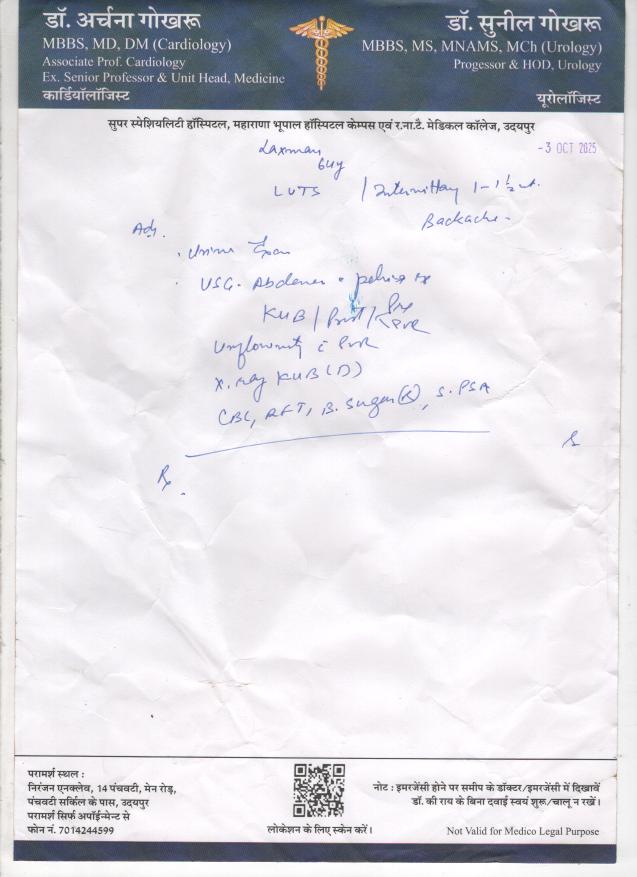 डॉ. अर्चना गोखरू
MBBS, MD, DM (Cardiology)
Associate Prof. Cardiology
Ex. Senior Professor & Unit Head, Medicine
कार्डियॉलॉजिस्ट
डॉ. सुनील गोखरू
MBBS, MS, MNAMS, MCh (Urology)
Progessor & HOD, Urology
यूरोलॉजिस्ट
सुपर स्पेशियलिटी हॉस्पिटल, महाराणा भूपाल हॉस्पिटल केम्पस एवं र.ना.टै. मेडिकल कॉलेज, उदयपुर
-3 OCT 2025
Laxman
64y
LUTS / 1-1½
Backache
Adv.
Urine
USG. Abdomen
KUB / /
c PVR
X.ray KUB (D)
CBC, RFT, B. Sugar (R), S. PSA
Rx.
परामर्श स्थल :
निरंजन एनक्लेव, 14 पंचवटी, मेन रोड़,
पंचवटी सर्किल के पास, उदयपुर
परामर्श सिर्फ अपॉईन्मेन्ट से
फोन नं. 7014244599
लोकेशन के लिए स्केन करें।
नोट : इमरजेंसी होने पर समीप के डॉक्टर/इमरजेंसी में दिखावें
डॉ. की राय के बिना दवाई स्वयं शुरू/चालू न रखें।
Not Valid for Medico Legal Purpose